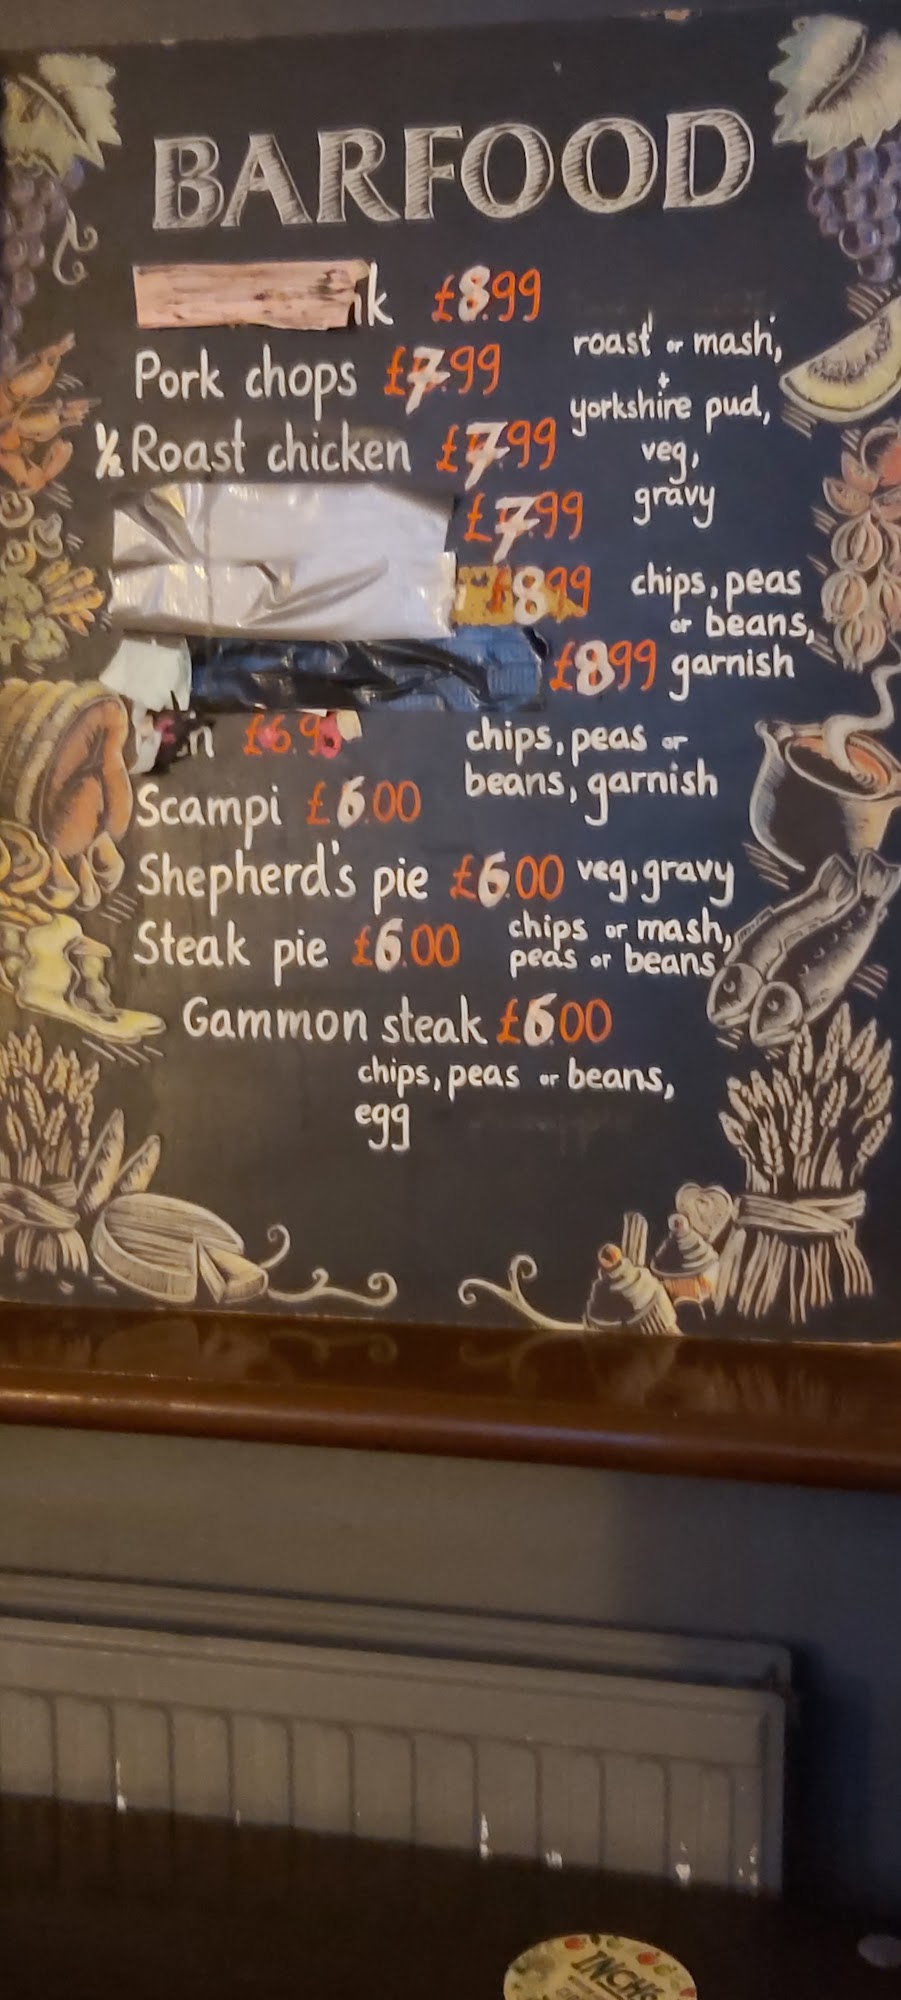 BARFOOD
k £8.99
roast or mash,
Pork chops £7.99
+
yorkshire pud,
½ Roast chicken £7.99
veg,
£7.99
gravy
£8.99 chips, peas
or beans,
£8.99 garnish
n £6.9
chips, peas or
beans, garnish
Scampi £6.00
Shepherd's pie £6.00 veg, gravy
Steak pie £6.00
chips or mash,
peas or beans
Gammon steak £6.00
chips, peas or beans,
egg
INCH'S